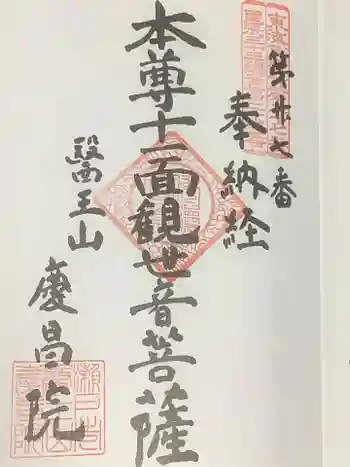 第廿七番
奉納経
本尊十一面観世音菩薩
醫王山
慶昌院